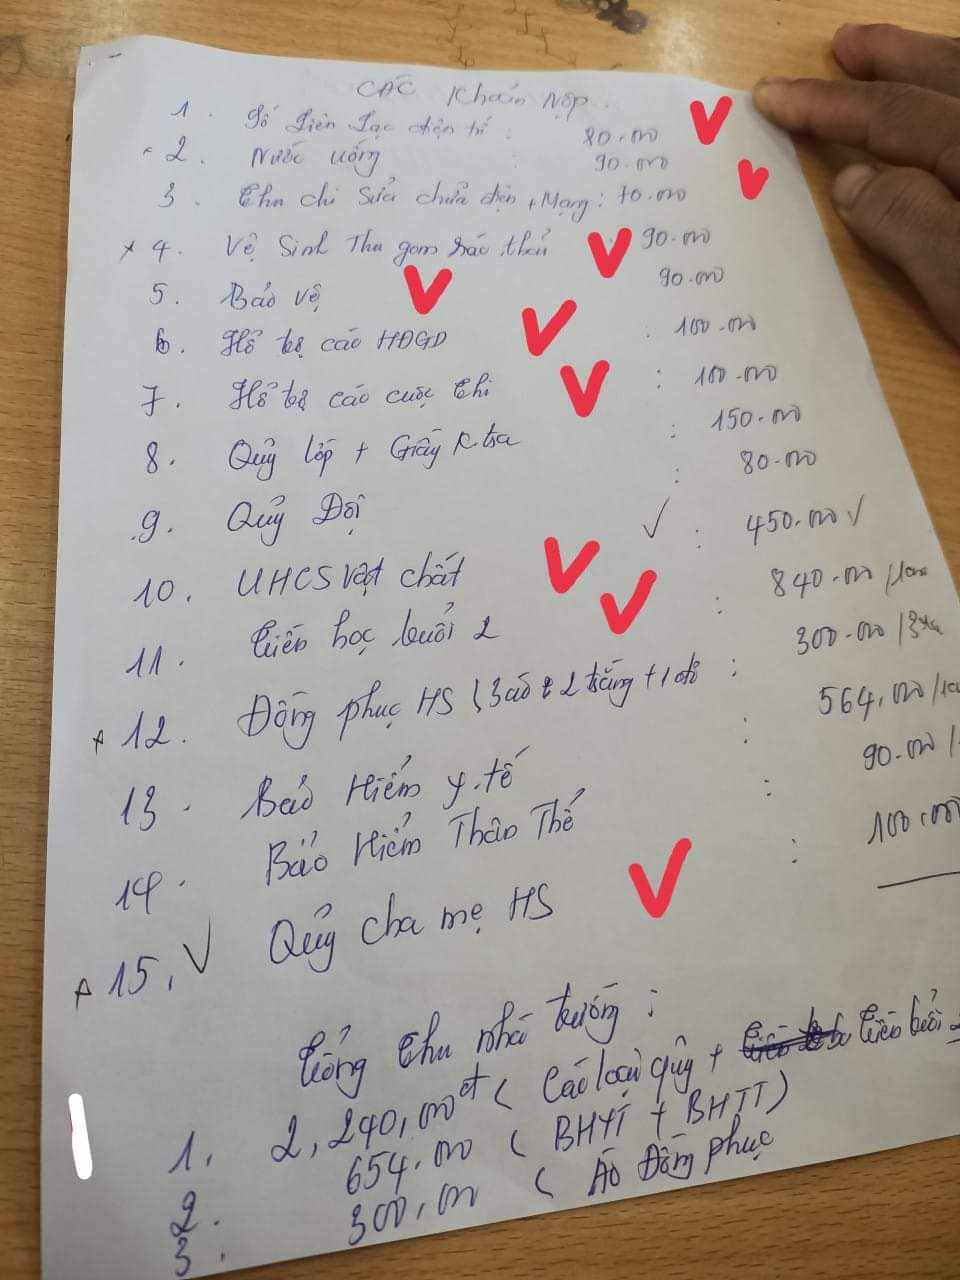 CÁC Khoản Nộp.
1. Sổ Liên Lạc điện tử : 80.000
2. Nước uống : 90.000
3. Thu chi Sửa chửa điện + Mạng : 70.000
x 4. Vệ Sinh Thu gom rác thải 90.000
5. Bảo vệ 90.000
6. Hổ trợ các HĐGD : 100.000
7. Hổ trợ các cuộc thi : 100.000
8. Quỷ lớp + Giấy K.tra : 150.000
9. Quỷ Đội : 80.000
10. UHCS vật chất : 450.000
11. Tiền học buổi 2 : 840.000
12. Đồng phục HS (3 áo 2 trắng + 1 đỏ : 300.000
13. Bảo Hiểm y.tế : 564,000
14. Bảo Hiểm Thân Thể : 90.000
15. Quỷ cha mẹ HS : 100.000
Tổng thu nhà trường :
1. 2,240,000đ ( Các loại quỹ + tiền buổi 2
2. 654.000 ( BHYT + BHTT)
3. 300,000 ( Áo Đồng phục